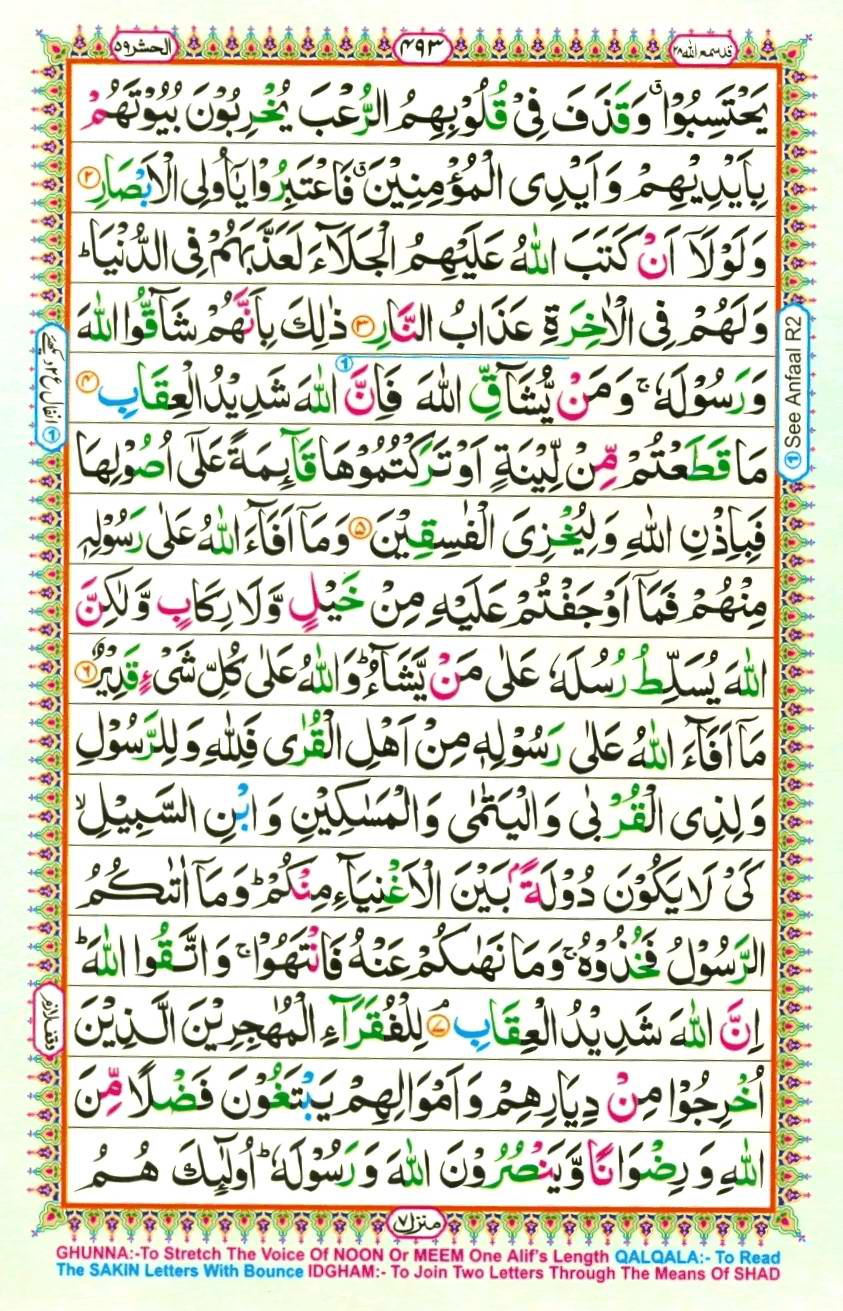 قد سمع الله ٢٨
٤٩٣
الحشر ٥٩
يَحْتَسِبُوْا ۗ وَقَذَفَ فِيْ قُلُوْبِهِمُ الرُّعْبَ يُخْرِبُوْنَ بُيُوْتَهُمْ
بِاَيْدِيْهِمْ وَاَيْدِى الْمُؤْمِنِيْنَ ۗ فَاعْتَبِرُوْا يٰٓاُولِى الْاَبْصَارِ ٢
وَلَوْلَآ اَنْ كَتَبَ اللّٰهُ عَلَيْهِمُ الْجَلَآءَ لَعَذَّبَهُمْ فِى الدُّنْيَا ؕ
وَلَهُمْ فِى الْاٰخِرَةِ عَذَابُ النَّارِ ٣ ذٰلِكَ بِاَنَّهُمْ شَآقُّوا اللّٰهَ
وَرَسُوْلَهٗ ۚ وَمَنْ يُّشَآقِّ اللّٰهَ فَاِنَّ اللّٰهَ شَدِيْدُ الْعِقَابِ ٤
مَا قَطَعْتُمْ مِّنْ لِّيْنَةٍ اَوْ تَرَكْتُمُوْهَا قَآئِمَةً عَلٰٓى اُصُوْلِهَا
فَبِاِذْنِ اللّٰهِ وَلِيُخْزِىَ الْفٰسِقِيْنَ ٥ وَمَآ اَفَآءَ اللّٰهُ عَلٰى رَسُوْلِهٖ
مِنْهُمْ فَمَآ اَوْجَفْتُمْ عَلَيْهِ مِنْ خَيْلٍ وَّلَا رِكَابٍ وَّلٰكِنَّ
اللّٰهَ يُسَلِّطُ رُسُلَهٗ عَلٰى مَنْ يَّشَآءُ ؕ وَاللّٰهُ عَلٰى كُلِّ شَىْءٍ قَدِيْرٌ ٦
مَآ اَفَآءَ اللّٰهُ عَلٰى رَسُوْلِهٖ مِنْ اَهْلِ الْقُرٰى فَلِلّٰهِ وَلِلرَّسُوْلِ
وَلِذِى الْقُرْبٰى وَالْيَتٰمٰى وَالْمَسٰكِيْنِ وَابْنِ السَّبِيْلِ ۙ
كَىْ لَا يَكُوْنَ دُوْلَةًۢ بَيْنَ الْاَغْنِيَآءِ مِنْكُمْ ؕ وَمَآ اٰتٰىكُمُ
الرَّسُوْلُ فَخُذُوْهُ ۚ وَمَا نَهٰىكُمْ عَنْهُ فَانْتَهُوْا ۚ وَاتَّقُوا اللّٰهَ ؕ
اِنَّ اللّٰهَ شَدِيْدُ الْعِقَابِ ۘ ٧ لِلْفُقَرَآءِ الْمُهٰجِرِيْنَ الَّذِيْنَ
اُخْرِجُوْا مِنْ دِيَارِهِمْ وَاَمْوَالِهِمْ يَبْتَغُوْنَ فَضْلًا مِّنَ
اللّٰهِ وَرِضْوَانًا وَّيَنْصُرُوْنَ اللّٰهَ وَرَسُوْلَهٗ ؕ اُولٰٓئِكَ هُمُ
① See Anfaal R2
① انفال ع ٢ دیکھئے
وقف لازم
منزل ٧
GHUNNA:-To Stretch The Voice Of NOON Or MEEM One Alif's Length QALQALA:- To Read
The SAKIN Letters With Bounce IDGHAM:- To Join Two Letters Through The Means Of SHAD